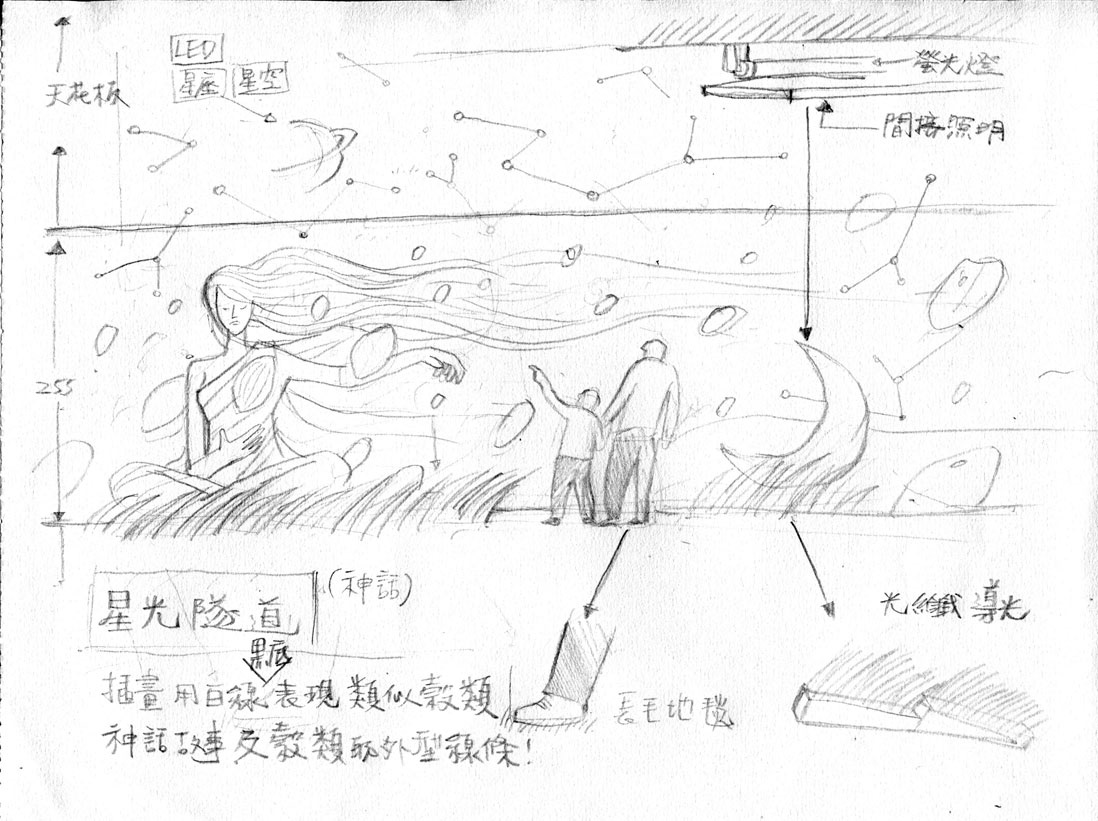 LED
星座 星空
天花板
螢光燈
間接照明
255
星光隧道
(神話)
黑底
插畫用白線表現類似穀類
神話故事及穀類的外型線條!
長毛地毯
光纖導光